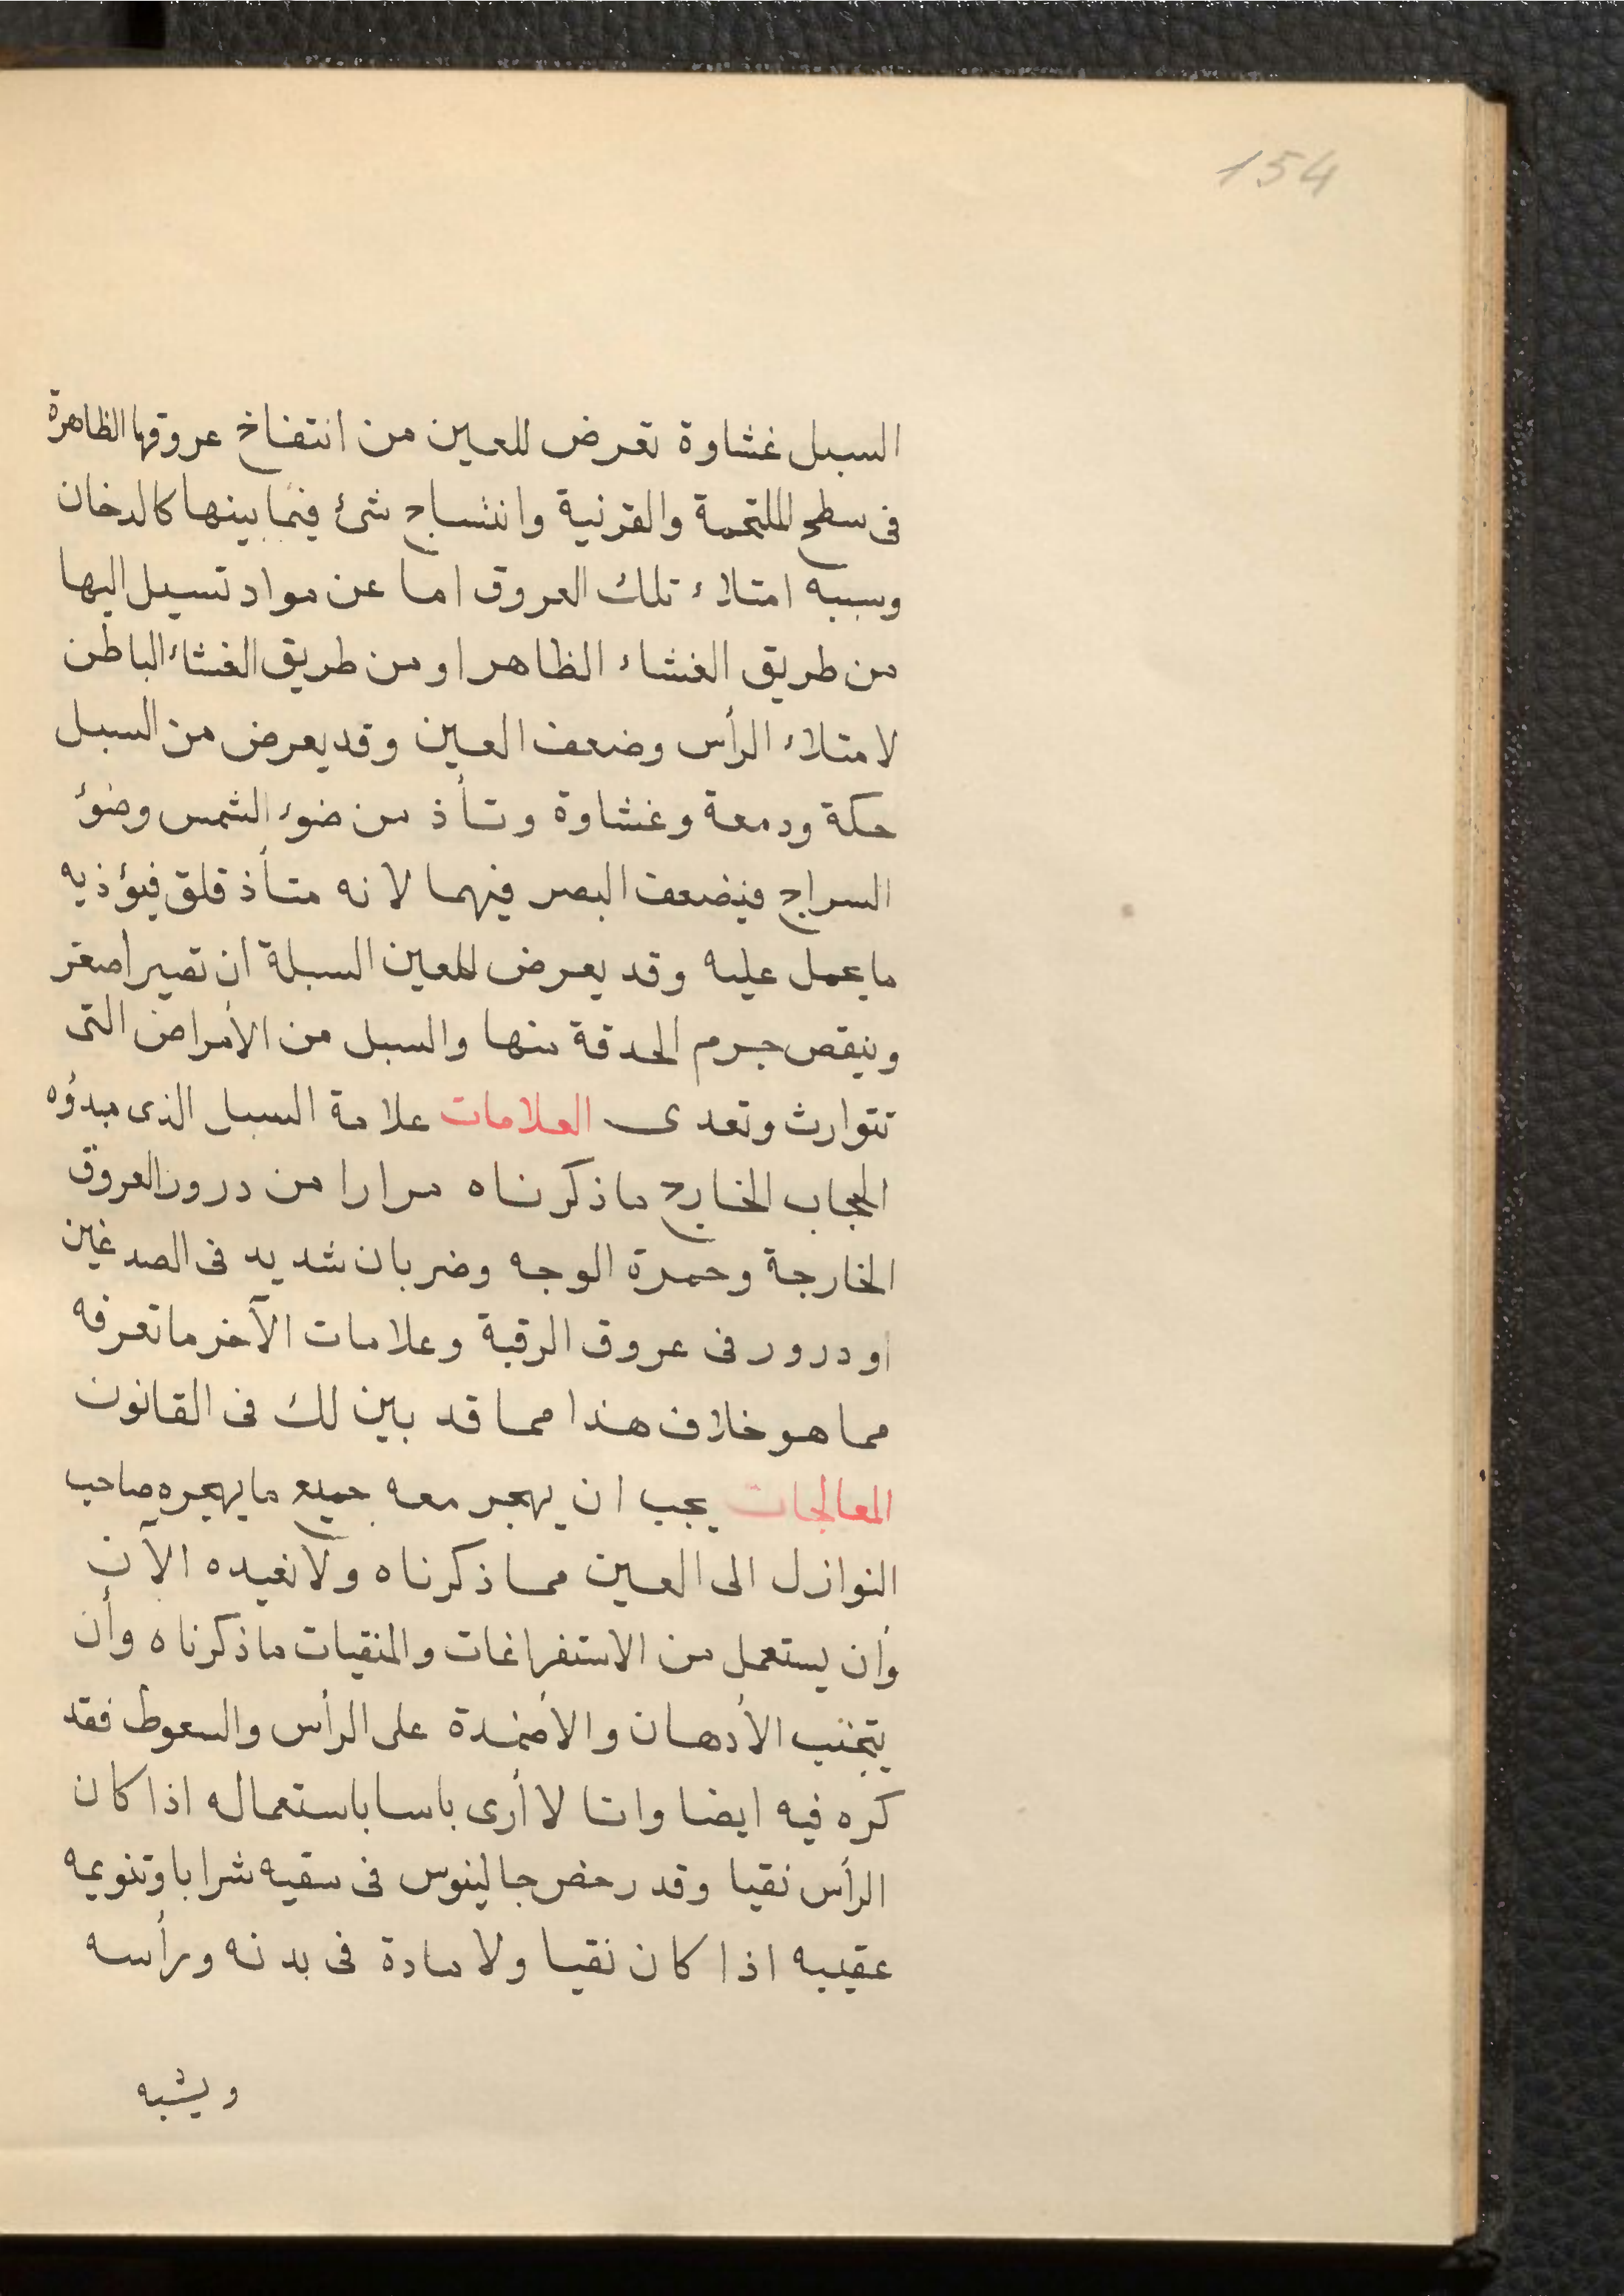 154
السبل غشاوة تعرض للعين من انتفاخ عروقها الظاهرة
فى سطح الملتحمة والقرنية وانتساج شئ فيما بينها كالدخان
وسببه امتلاء تلك العروق اما عن مواد تسيل اليها
من طريق الغشاء الظاهر او من طريق الغشاء الباطن
لامتلاء الرأس وضعف العين وقد يعرض من السبل
حكة ودمعة وغشاوة وتأذ من ضوء الشمس وضوء
السراج فيضعف البصر فيهما لانه متأذ قلق فيؤذيه
ما يحمل عليه وقد يعرض للعين السبلة ان تصير أصغر
وينقص جرم الحدقة منها والسبل من الأمراض التى
تتوارث وتعدى العلامات علامة السبل الذى مبدؤه
الحجاب الخارج ما ذكرناه مرارا من درور العروق
الخارجة وحمرة الوجه وضربان شديد فى الصدغين
او درور فى عروق الرقبة وعلامات الآخر ما تعرفه
مما هو خلاف هذا مما قد بين لك فى القانون
المعالجات يجب ان يهجر معه جميع ما يهجره صاحب
النوازل الى العين مما ذكرناه ولا نعيده الآن
وأن يستعمل من الاستفراغات والمنقيات ما ذكرناه وأن
يتجنب الأدهان والأضمدة على الرأس والسعوط فقد
كره فيه ايضا وانا لا أرى باسا باستعماله اذا كان
الرأس نقيا وقد رخص جالينوس فى سقيه شرابا وتنويمه
عقيبه اذا كان نقيا ولا مادة فى بدنه ورأسه
ويشبه